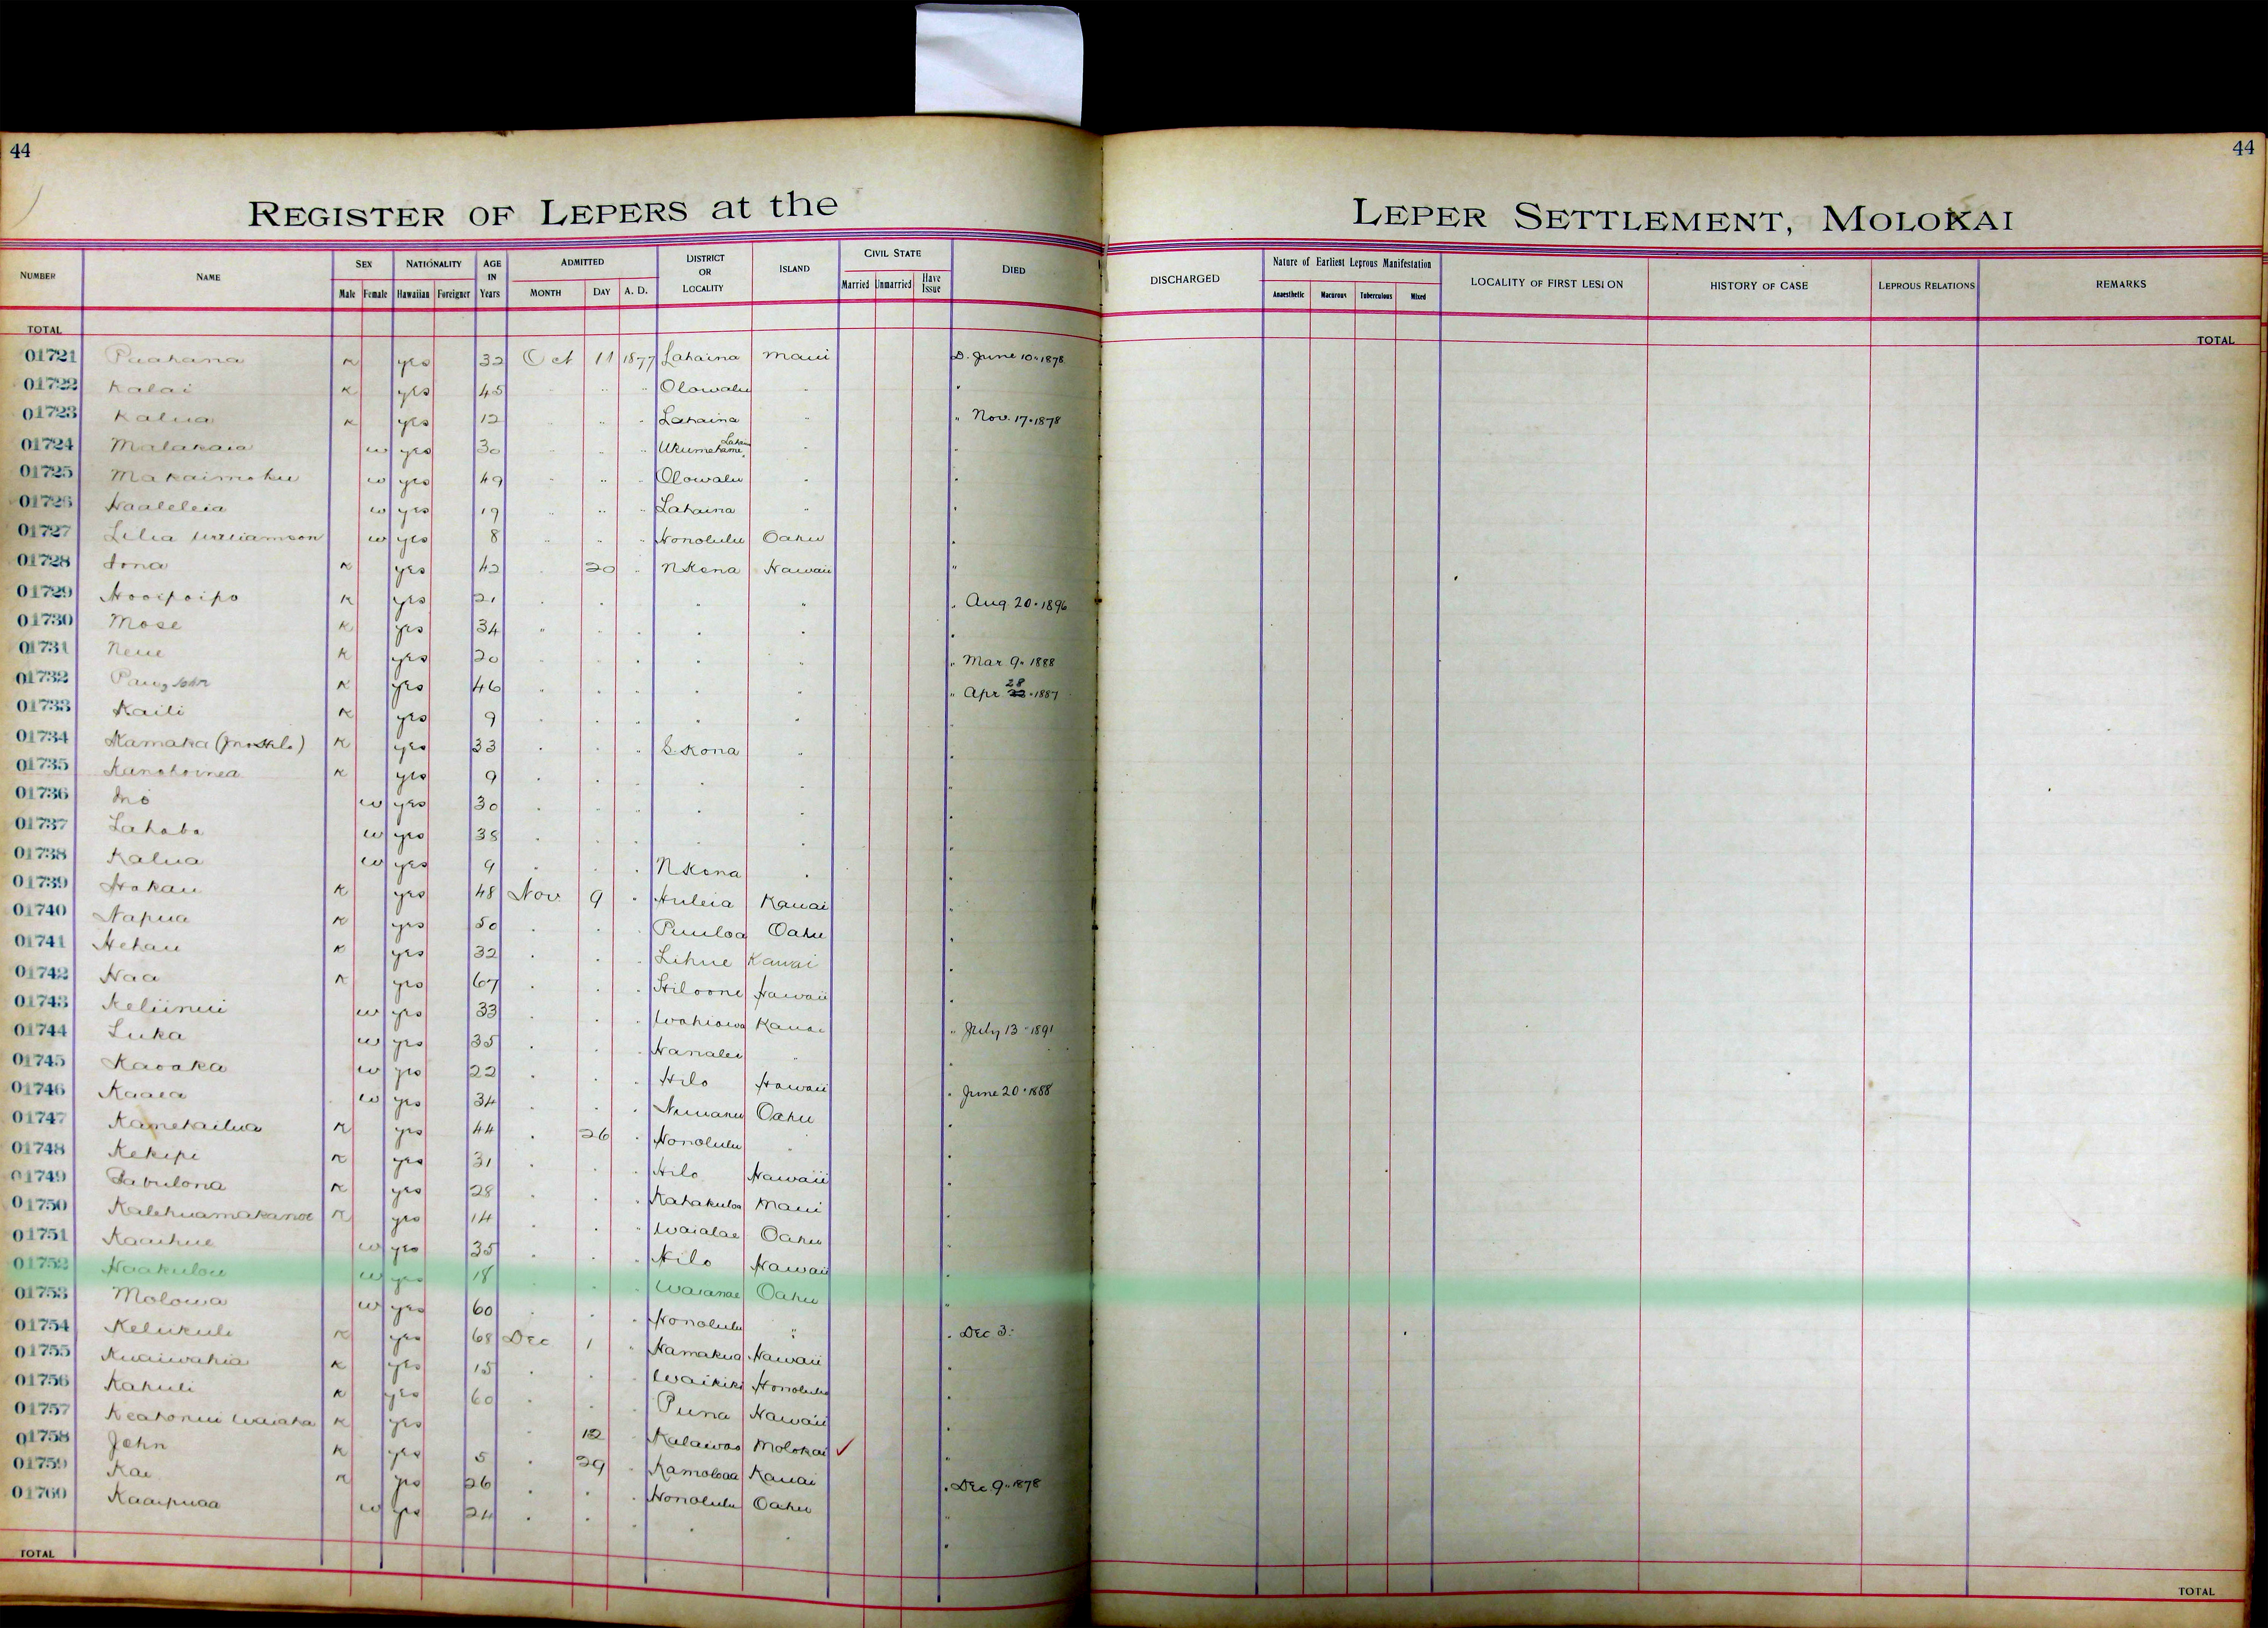 44
44
REGISTER OF LEPERS at the
LEPER SETTLEMENT, MOLOKAI
NUMBER NAME SEX Male Female NATIONALITY Hawaiian Foreigner AGE IN Years ADMITTED MONTH DAY A. D. DISTRICT OR LOCALITY ISLAND CIVIL STATE Married Unmarried Have Issue DIED
DISCHARGED Nature of Earliest Leprous Manifestation Anaesthetic Macurous Tuberculous Mixed LOCALITY OF FIRST LESION HISTORY OF CASE LEPROUS RELATIONS REMARKS
TOTAL
TOTAL
01721 Puahana K yes 32 Oct 11 1877 Lahaina Maui D. June 10 " 1878
01722 Kalai K yes 45 " " " Olowalu " "
01723 Kalua K yes 12 " " " Lahaina " " Nov. 17 " 1878
01724 w yes 30 " " " " "
01725 Makaimoku w yes 49 " " " Olowalu " "
01726 Haaleleia w yes 19 " " " Lahaina " "
01727 Lilia Williamson w yes 8 " " " Honolulu Oahu "
01728 Iona K yes 42 " 20 " N Kona Hawaii "
01729 Hooipoipo K yes 21 " " " " " " Aug. 20 " 1896
01730 Mose K yes 34 " " " " " "
01731 Neue K yes 20 " " " " " " Mar 9 " 1888
01732 John K yes 46 " " " " " " Apr 28 " 1887
01733 Kaili K yes 9 " " " " " "
01734 Kamaka K yes 33 " " " S. Kona " "
01735 K yes 9 " " " " " "
01736 w yes 30 " " " " " "
01737 w yes 38 " " " " " "
01738 Kalua w yes 9 " " " N Kona " "
01739 Hokau K yes 48 Nov 9 " Huleia Kauai "
01740 Napua K yes 50 " " " Puuloa Oahu "
01741 Hehau K yes 32 " " " Lihue Kauai "
01742 Naa K yes 67 " " " Hiloone Hawaii "
01743 Keliinui w yes 33 " " " Wahiawa Kauai " July 13 " 1891
01744 Luka w yes 35 " " " Hanalei " "
01745 Kaoaka w yes 22 " " " Hilo Hawaii " June 20 " 1888
01746 Kaaea w yes 34 " " " Nuuanu Oahu "
01747 Kamekailua K yes 44 " 26 " Honolulu " "
01748 Kekipi K yes 31 " " " Hilo Hawaii "
01749 K yes 28 " " " Kahakuloa Maui "
01750 Kalehuamakanoe K yes 14 " " " Waialae Oahu "
01751 Kaaihue w yes 35 " " " Hilo Hawaii "
01752 Haakulou w yes 18 " " " Waianae Oahu "
01753 Molowa w yes 60 " " " Honolulu " " Dec 3.
01754 Kelikuli K yes 68 Dec 1 " Hamakua Hawaii "
01755 Kuaiwahia K yes 15 " " " Waikiki Honolulu "
01756 Kahuli K yes 60 " " " Puna Hawaii "
01757 K yes " 12 " Kalawao Molokai ✓ "
01758 John K yes 5 " 29 " Kamoloaa Kauai " Dec 9 " 1878
01759 Kai K yes 26 " " " Honolulu Oahu "
01760 Kaaipuaa w yes 24 " " " " " "
TOTAL
TOTAL